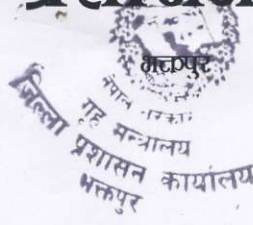 भक्तपुर
नेपाल सरकार
गृह मन्त्रालय
जिल्ला प्रशासन कार्यालय
भक्तपुर